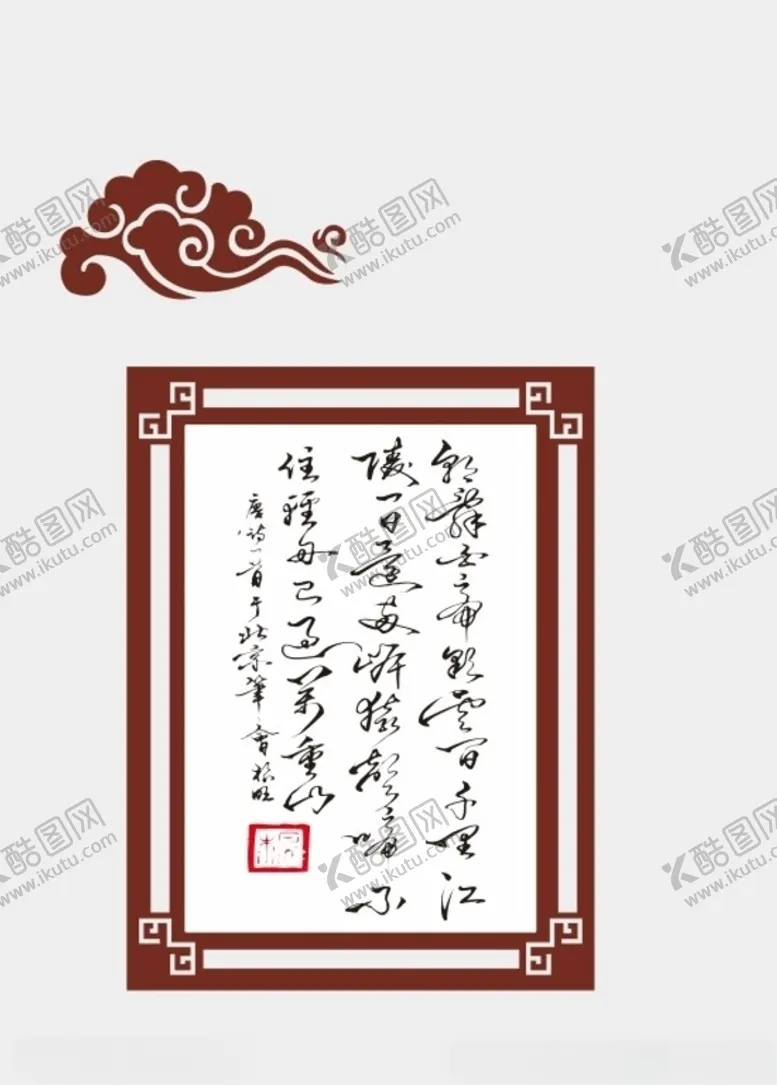 酷图网
www.ikutu.com
酷图网
www.ikutu.com
酷图网
www.ikutu.com
朝辭白帝彩雲間千里江
陵一日還兩岸猿聲啼不
住輕舟已過萬重山
唐詩一首于北京筆會
酷图网
www.ikutu.com
酷图网
www.ikutu.com
酷图网
www.ikutu.com
酷图网
www.ikutu.com
酷图网
www.ikutu.com
酷图网
www.ikutu.com